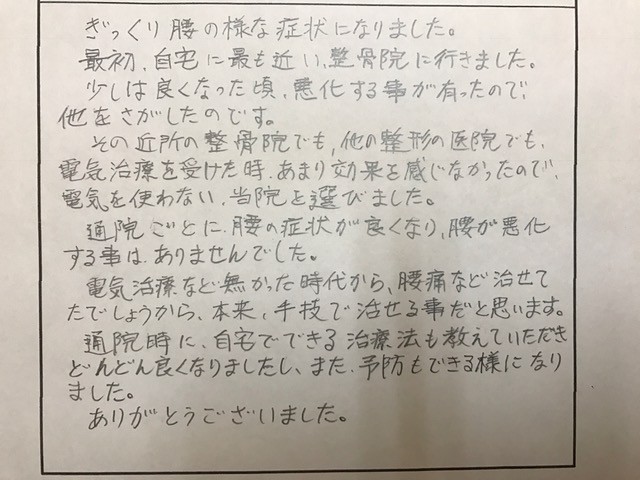 ぎっくり腰の様な症状になりました。
最初、自宅に最も近い、整骨院に行きました。
少しは良くなった頃、悪化する事が有ったので、
他をさがしたのです。
その近所の整骨院でも、他の整形の医院でも、
電気治療を受けた時、あまり効果を感じなかったので、
電気を使わない、当院を選びました。
通院ごとに、腰の症状が良くなり、腰が悪化
する事は、ありませんでした。
電気治療など無かった時代から、腰痛など治せて
たでしょうから、本来、手技で治せる事だと思います。
通院時に、自宅でできる治療法も教えていただき
どんどん良くなりましたし、また、予防もできる様になり
ました。
ありがとうございました。